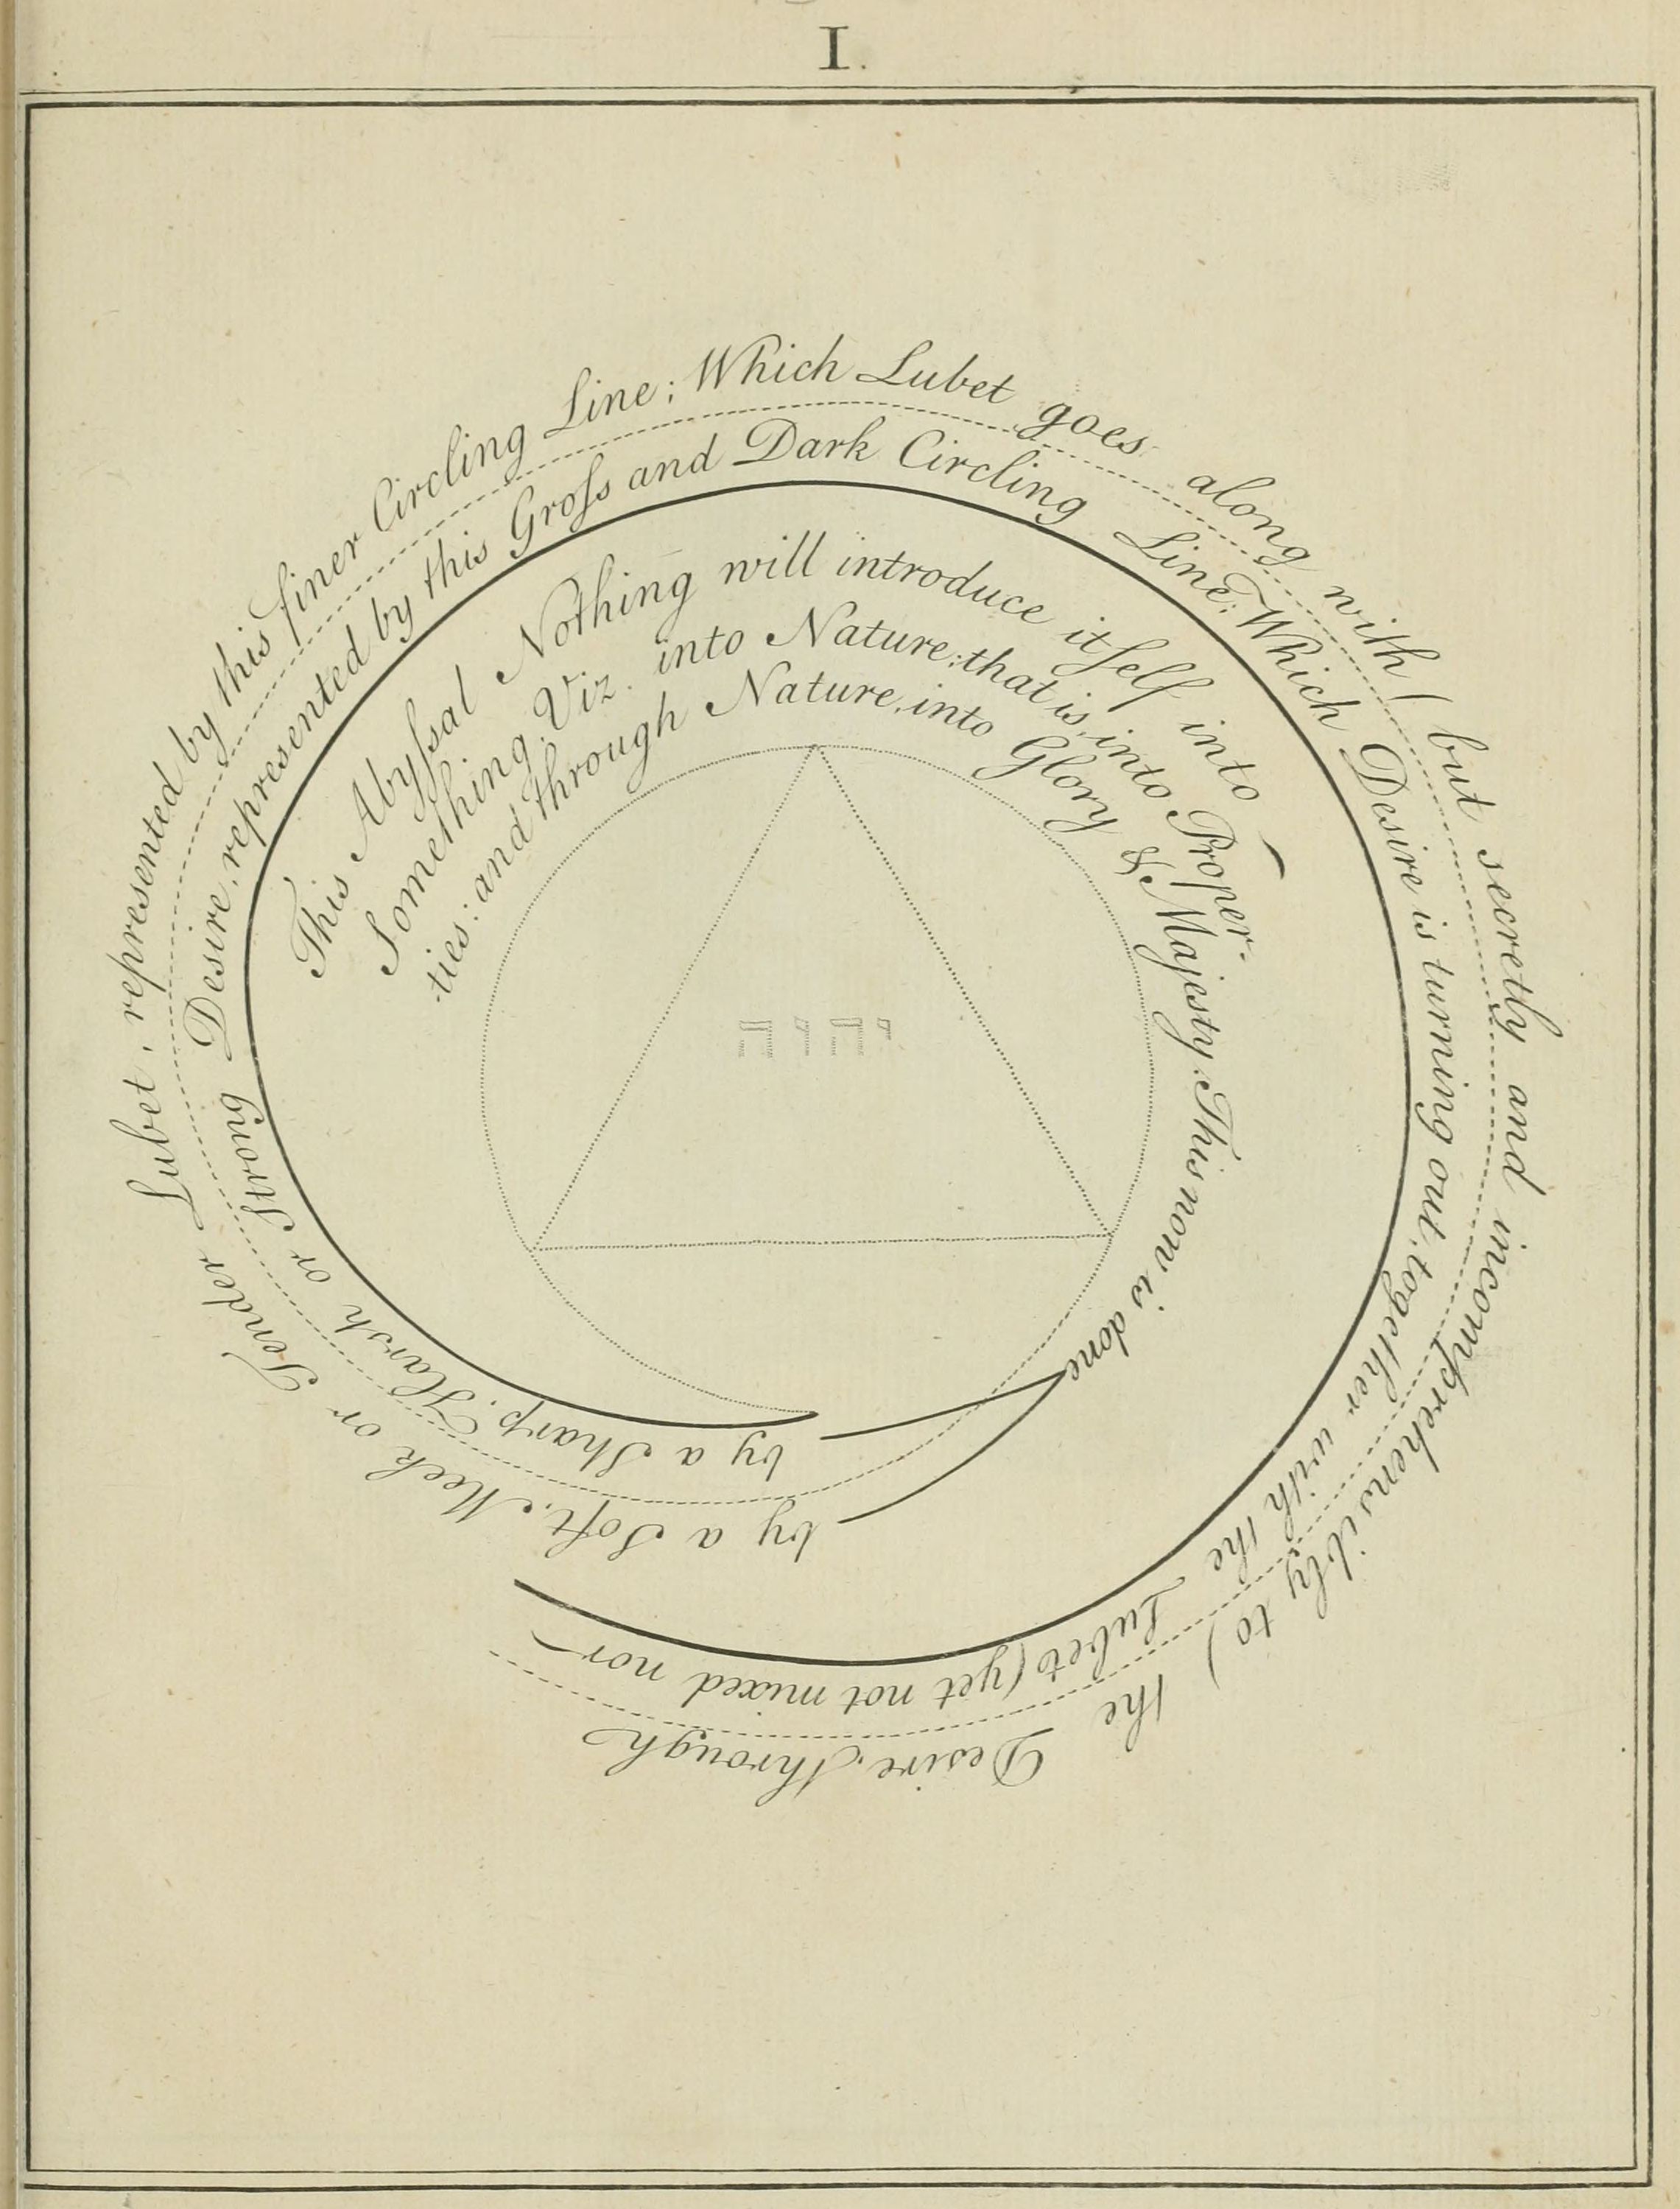 I.
This Abyſsal Nothing will introduce itſelf into
Something, Viz. into Nature; that is, into Proper-
ties: and through Nature, into Glory & Majesty. This now is done
by a Sharp, Harsh or Strong Desire, represented by this Groſs and Dark Circling Line; Which Desire is turning out, together with the Lubet (yet not mixed nor
by a Soft, Meek or Tender Lubet, represented by this finer Circling Line; Which Lubet goes along with (but secretly and incomprehensibly to) the Desire, through
יהוה